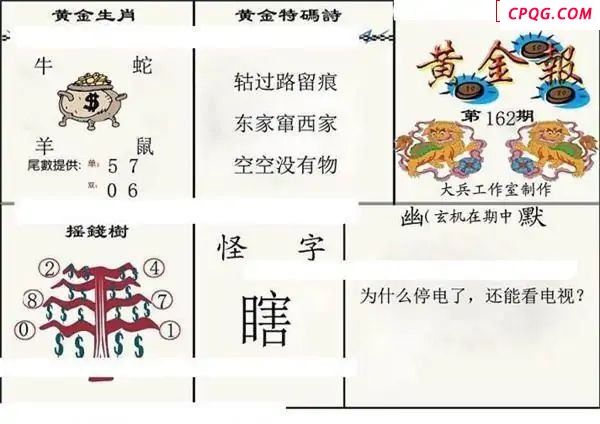 CPQG.COM
黄金生肖
牛 蛇
羊 鼠
尾數提供: 单: 5 7
双: 0 6
黄金特碼詩
轱过路留痕
东家窜西家
空空没有物
黄金報
第162期
大兵工作室制作
摇錢樹
2 4
8 7
0 1
怪 字
瞎
幽(玄机在期中)默
为什么停电了，还能看电视？